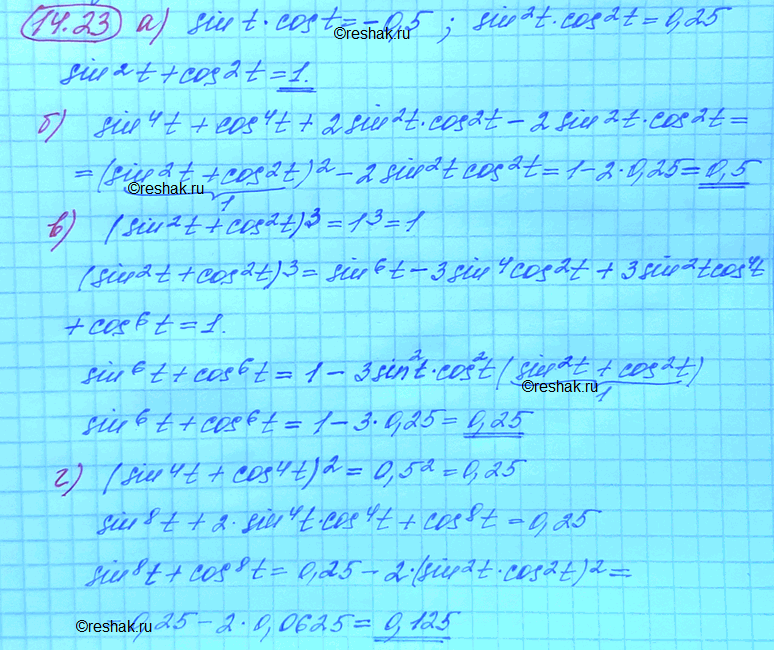 14.23 а) sin t · cos t = -0,5 ; sin²t · cos²t = 0,25
©reshak.ru
sin²t + cos²t = 1.
б) sin⁴t + cos⁴t + 2 sin²t · cos²t - 2 sin²t · cos²t =
= (sin²t + cos²t)² - 2 sin²t cos²t = 1 - 2 · 0,25 = 0,5
©reshak.ru
1
в) (sin²t + cos²t)³ = 1³ = 1
(sin²t + cos²t)³ = sin⁶t - 3 sin⁴ cos²t + 3 sin²t cos⁴t
+ cos⁶t = 1.
sin⁶t + cos⁶t = 1 - 3 sin²t · cos²t (sin²t + cos²t)
©reshak.ru
1
sin⁶t + cos⁶t = 1 - 3 · 0,25 = 0,25
г) (sin⁴t + cos⁴t)² = 0,5² = 0,25
sin⁸t + 2 · sin⁴t · cos⁴t + cos⁸t = 0,25
sin⁸t + cos⁸t = 0,25 - 2 · (sin²t · cos²t)² =
= 0,25 - 2 · 0,0625 = 0,125
©reshak.ru
©reshak.ru